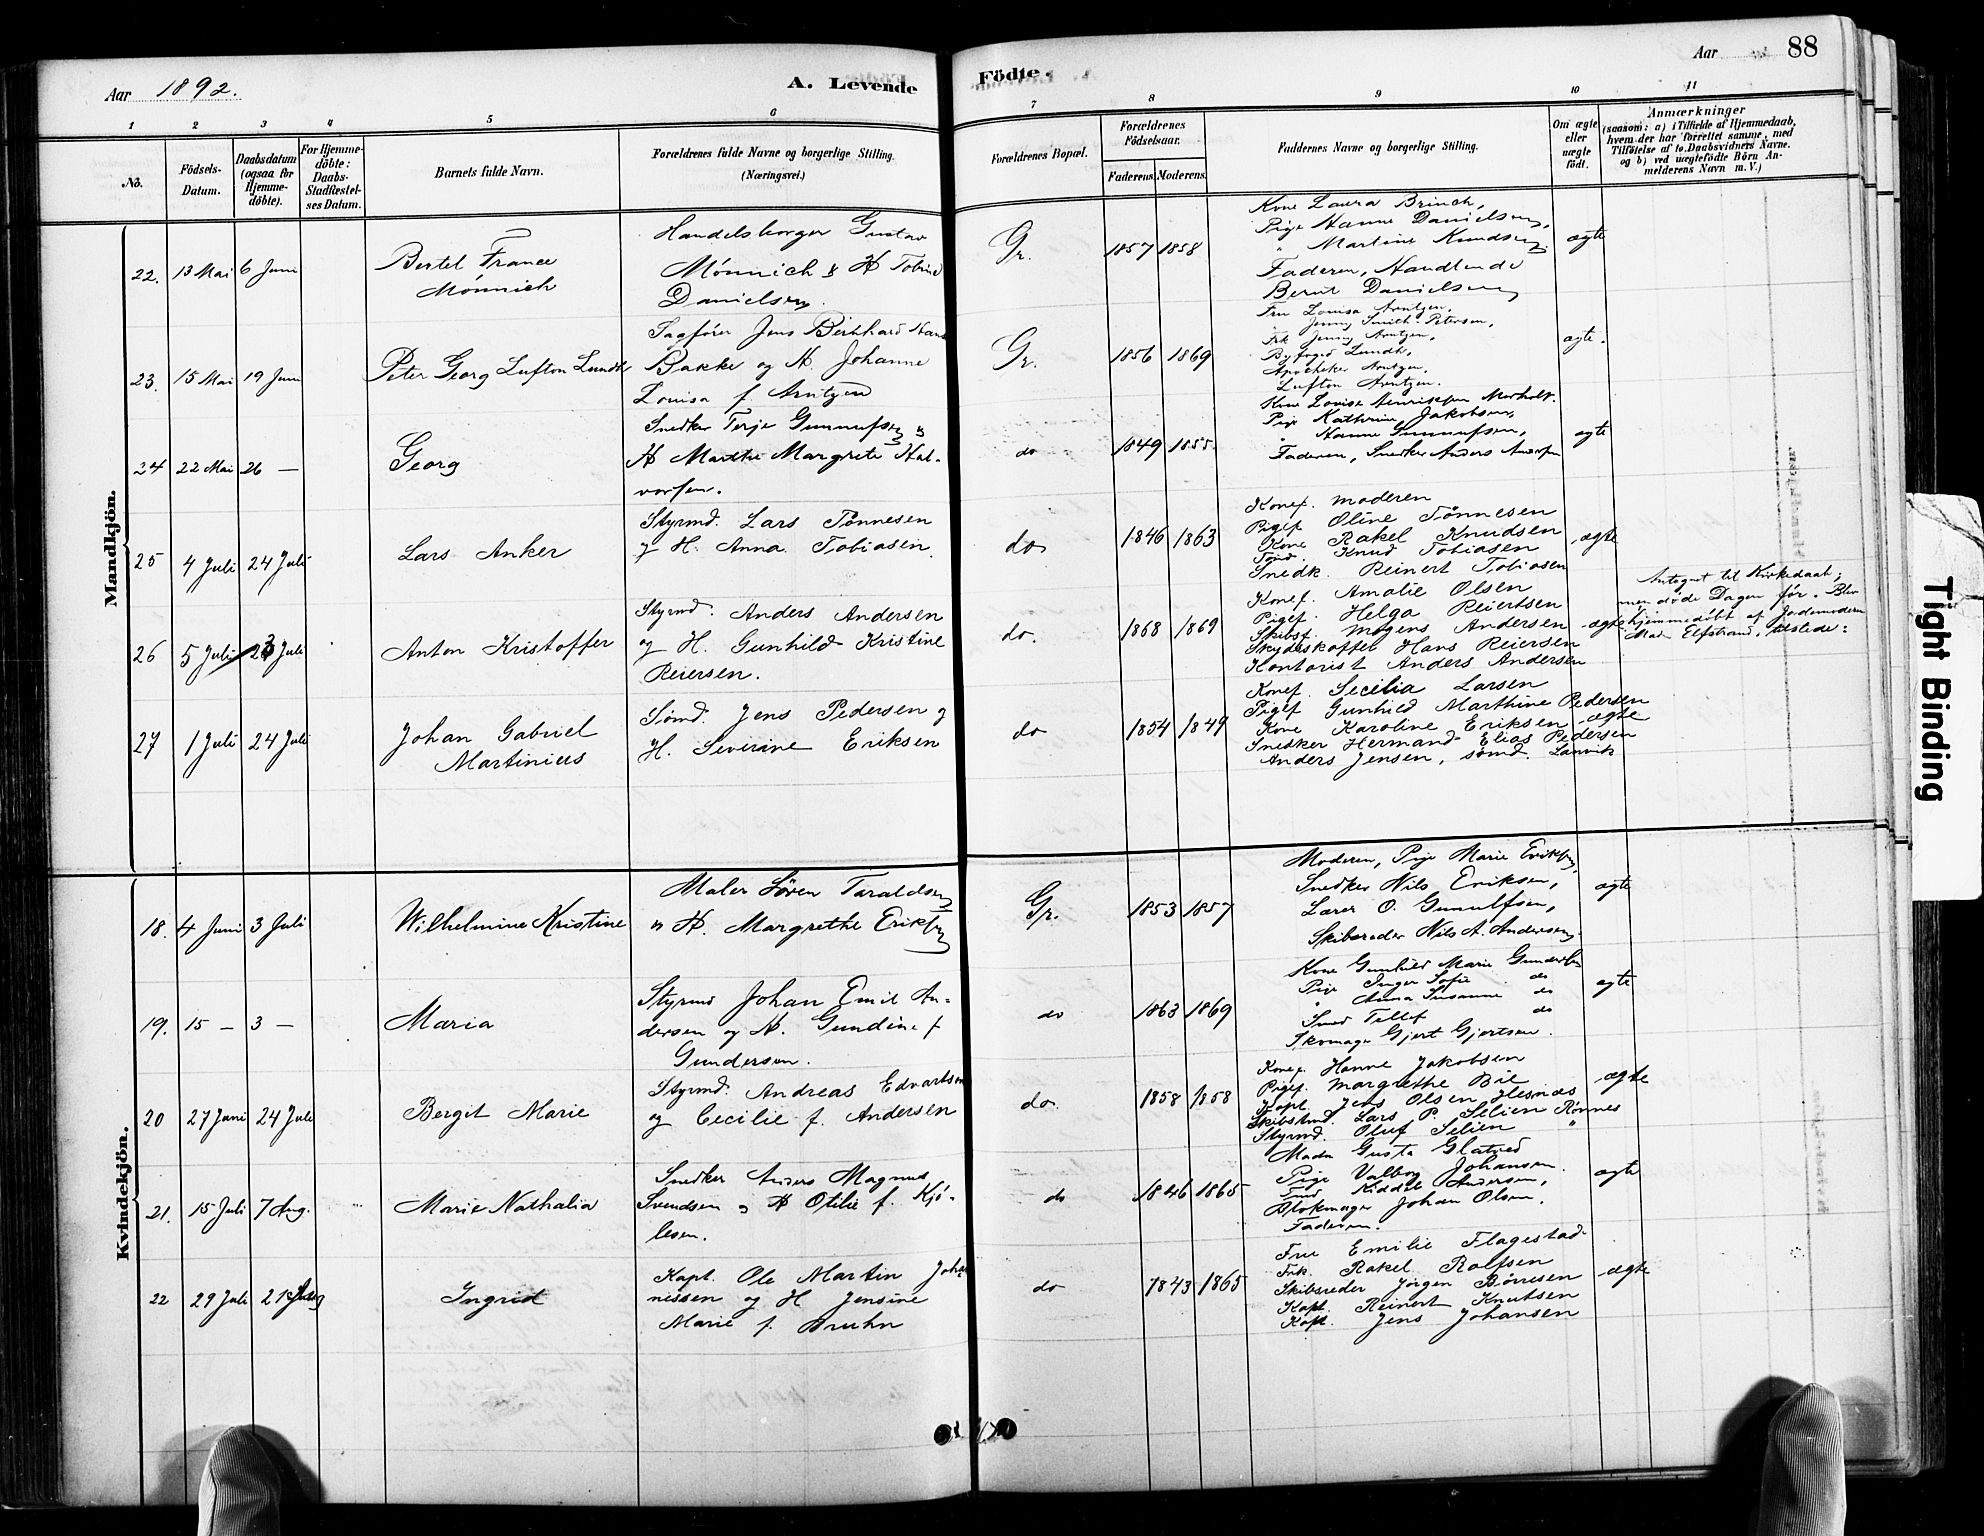 Aar 1892.
A. Levende
Födte.
Aar
88
1 2 3 4 5 6 7 8 9 10 11
No.
Födsels-
Datum.
Daabsdatum
(ogsaa for
Hjemme-
döbte).
For Hjemme-
döbte:
Daabs-
Stadfestel-
ses Datum.
Barnets fulde Navn.
Forældrenes fulde Navne og borgerlige Stilling.
(Næringsvei.)
Forældrenes Bopæl.
Forældrenes
Födselsaar.
Faderens. Moderens.
Faddernes Navne og borgerlige Stilling.
Om ægte
eller
uægte
født.
Anmærkninger
(saasom: a) i Tilfælde af Hjemmedaab,
hvem der har forrettet samme, med
Tilföielse af to Daabsvidners Navne,
og b) ved uægtefödte Börn An-
melderens Navn m. V.)
Mandkjön.
22. 13 Mai 6 Juni
Bertel France
Mönnich
Handelsborger Gustav
Mönnich & H Tobine
Danielsen.
Gr. 1857 1858
Kone Laura Brinch,
Pige Hanne Danielsen,
" Martine Knudsen
Faderen, Handlende
Bernt Danielsen
ægte
23. 15 Mai 19 Juni
Peter Georg Lufton Lundh
Sagförer Jens Bernhard Hans
Bakke og H. Johanne
Louisa f. Arntzen
Gr. 1856 1869
Fru Louisa Arntzen,
" Jenny Smith-Petersen,
Frk Jenny Arntzen,
Byfoged Lundh,
Apotheker Arntzen,
Lufton Arntzen.
ægte.
24 22 Mai 26 —
Georg
Snedker Terje Gunnufsen &
H Marthe Margrete Hal-
vorsen.
do 1849 1855
Kone Lovise Henriksen Morholt.
Pige Kathrine Jakobsen,
" Hanne Gunnufsen,
Faderen, Snedker Anders
ægte
25 4 Juli 24 Juli
Lars Anker
Styrmd. Lars Tönnesen
og H. Anna Tobiasen.
do 1846 1863
Konef. Moderen
Pigef Oline Tönnesen
Kone Rakel Knudsen
Tömd. Knud Tobiasen
Snedk. Reinert Tobiasen
ægte
26 5 Juli 23 Juli
Anton Kristoffer
Styrmd. Anders Andersen
og H. Gunhild Kristine
Reiersen.
do. 1868 1869
Konef. Amalie Olsen
Pigef. Helga Reiertsen
Skibsf. Mogens Andersen
Skydeskaffer Hans Reiersen
Kontorist Anders Andersen
ægte
Antegnet til Kirkedaab;
men döde Dagen för. Blev
hjemmedöbt af Jordemoderen
Mad. Elfstrand, tilstede:
27 1 Juli 24 Juli
Johan Gabriel
Martinius
Sömd. Jens Pedersen og
H. Severine Eriksen
do 1854 1849
Konef. Secilia Larsen
Pigef Gunhild Marthine Pedersen
Kone Karoline Eriksen
Snedker Hermand Elias Pedersen
Anders Jensen, sömd. Lanvik
ægte
Kvindekjön.
18. 4 Juni 3 Juli
Wilhelmine Kristine
Maler Sören Taraldsen
& H. Margrethe Eriksen
Gr. 1853 1857
Moderen, Pige Marie Eriksen,
Snedker Nils Eriksen,
Lærer O. Gunulfsen,
Skibsreder Nils A. Andersen.
ægte
19. 15 — 3 —
Maria
Styrmd Johan Emil An-
dersen og H. Gundine f
Gundersen.
do 1863 1869
Kone Gunhild Marie Gundersen
Pige Inger Sofie do
" Anna Susanne do
Smed Tellef do
Skomager Gjert Gjertsen.
ægte
20 27 Juni 24 Juli
Bergit Marie
Styrmd. Andreas Edvartsen
og Cecilie f. Andersen
do. 1858 1858
Konef. Hanne Jakobsen
Pigef. Margrethe Bie
Kapt. Jens Olsen Hesnæs
Skibstmd. Lars P. Selien Rönnes
Styrmd. Oluf Selien "
ægte
21. 15 Juli 7 Aug.
Marie Nathalia
Snedker Anders Magnus
Svendsen og H Otilie f. Kjö-
lesen.
do 1846 1865
Mada Gusta Glatved
Pige Valborg Johansen.
Kiddel Andersen,
Blokmager Johan Olsen.
Faderen.
ægte
22 29 Juli 21 Aug
Ingrid
Kapt. Ole Martin Joha
nissen og H Jensine
Marie f. Bruhn
do 1843 1865
Fru Emilie Flagestad
Frk. Rakel Rolfsen
Skibsreder Jörgen Börresen
Kapt. Reinert Knutsen
Kapt. Jens Johansen
ægte
Tight Binding